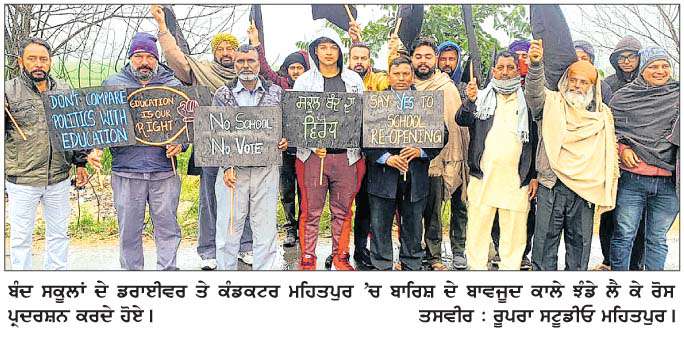 DON'T COMPARE
POLITICS WITH
EDUCATION
EDUCATION
IS OUR
RIGHT
NO SCHOOL
NO VOTE
ਸਕੂਲ ਬੰਦ ਦਾ
ਵਿਰੋਧ
SAY YES TO
SCHOOL
RE-OPENING
ਬੰਦ ਸਕੂਲਾਂ ਦੇ ਡਰਾਈਵਰ ਤੇ ਕੰਡਕਟਰ ਮਹਿਤਪੁਰ 'ਚ ਬਾਰਿਸ਼ ਦੇ ਬਾਵਜੂਦ ਕਾਲੇ ਝੰਡੇ ਲੈ ਕੇ ਰੋਸ
ਪ੍ਰਦਰਸ਼ਨ ਕਰਦੇ ਹੋਏ। ਤਸਵੀਰ : ਰੂਪਰਾ ਸਟੂਡੀਓ ਮਹਿਤਪੁਰ।